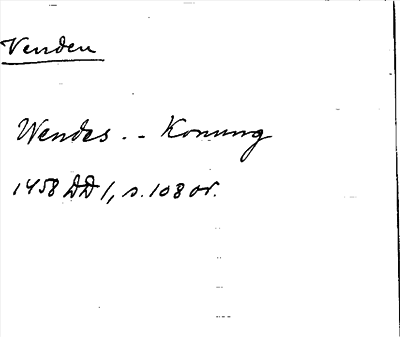 Venden
Wendes .. Konung
1458 DD 1, s. 108 or.